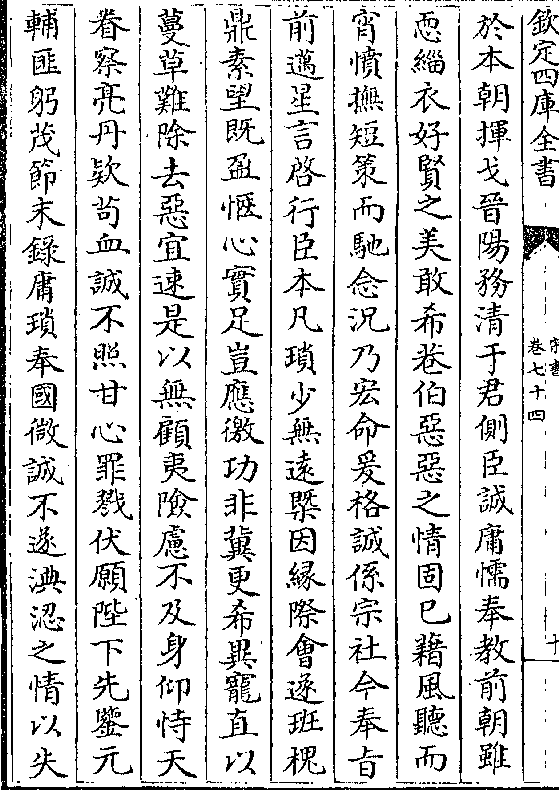 欽定四庫全書
宋書
卷七十四
十
於本朝揮戈晉陽務清于君側臣誠庸懦奉教前朝雖
恧緇衣好賢之美敢希巷伯惡惡之情固已藉風聽而
宵憤撫短策而馳念況乃宏命爰格誠係宗社今奉旨
前邁星言啓行臣本凡瑣少無遠槩因縁際會遂班槐
鼎素望既盈惬心實足豈應徼功非冀更希異寵直以
蔓草難除去惡宜速是以無顧夷險慮不及身仰恃天
眷察亮丹欵苟血誠不照甘心罪戮伏願陛下先鑒元
輔匪躬茂節末錄庸瑣奉國微誠不遂淟涊之情以失